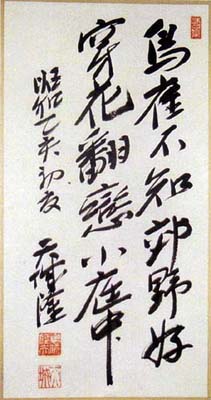 鳥雀不知郊野好
穿花翻戀小庭中
昭和乙亥初夏